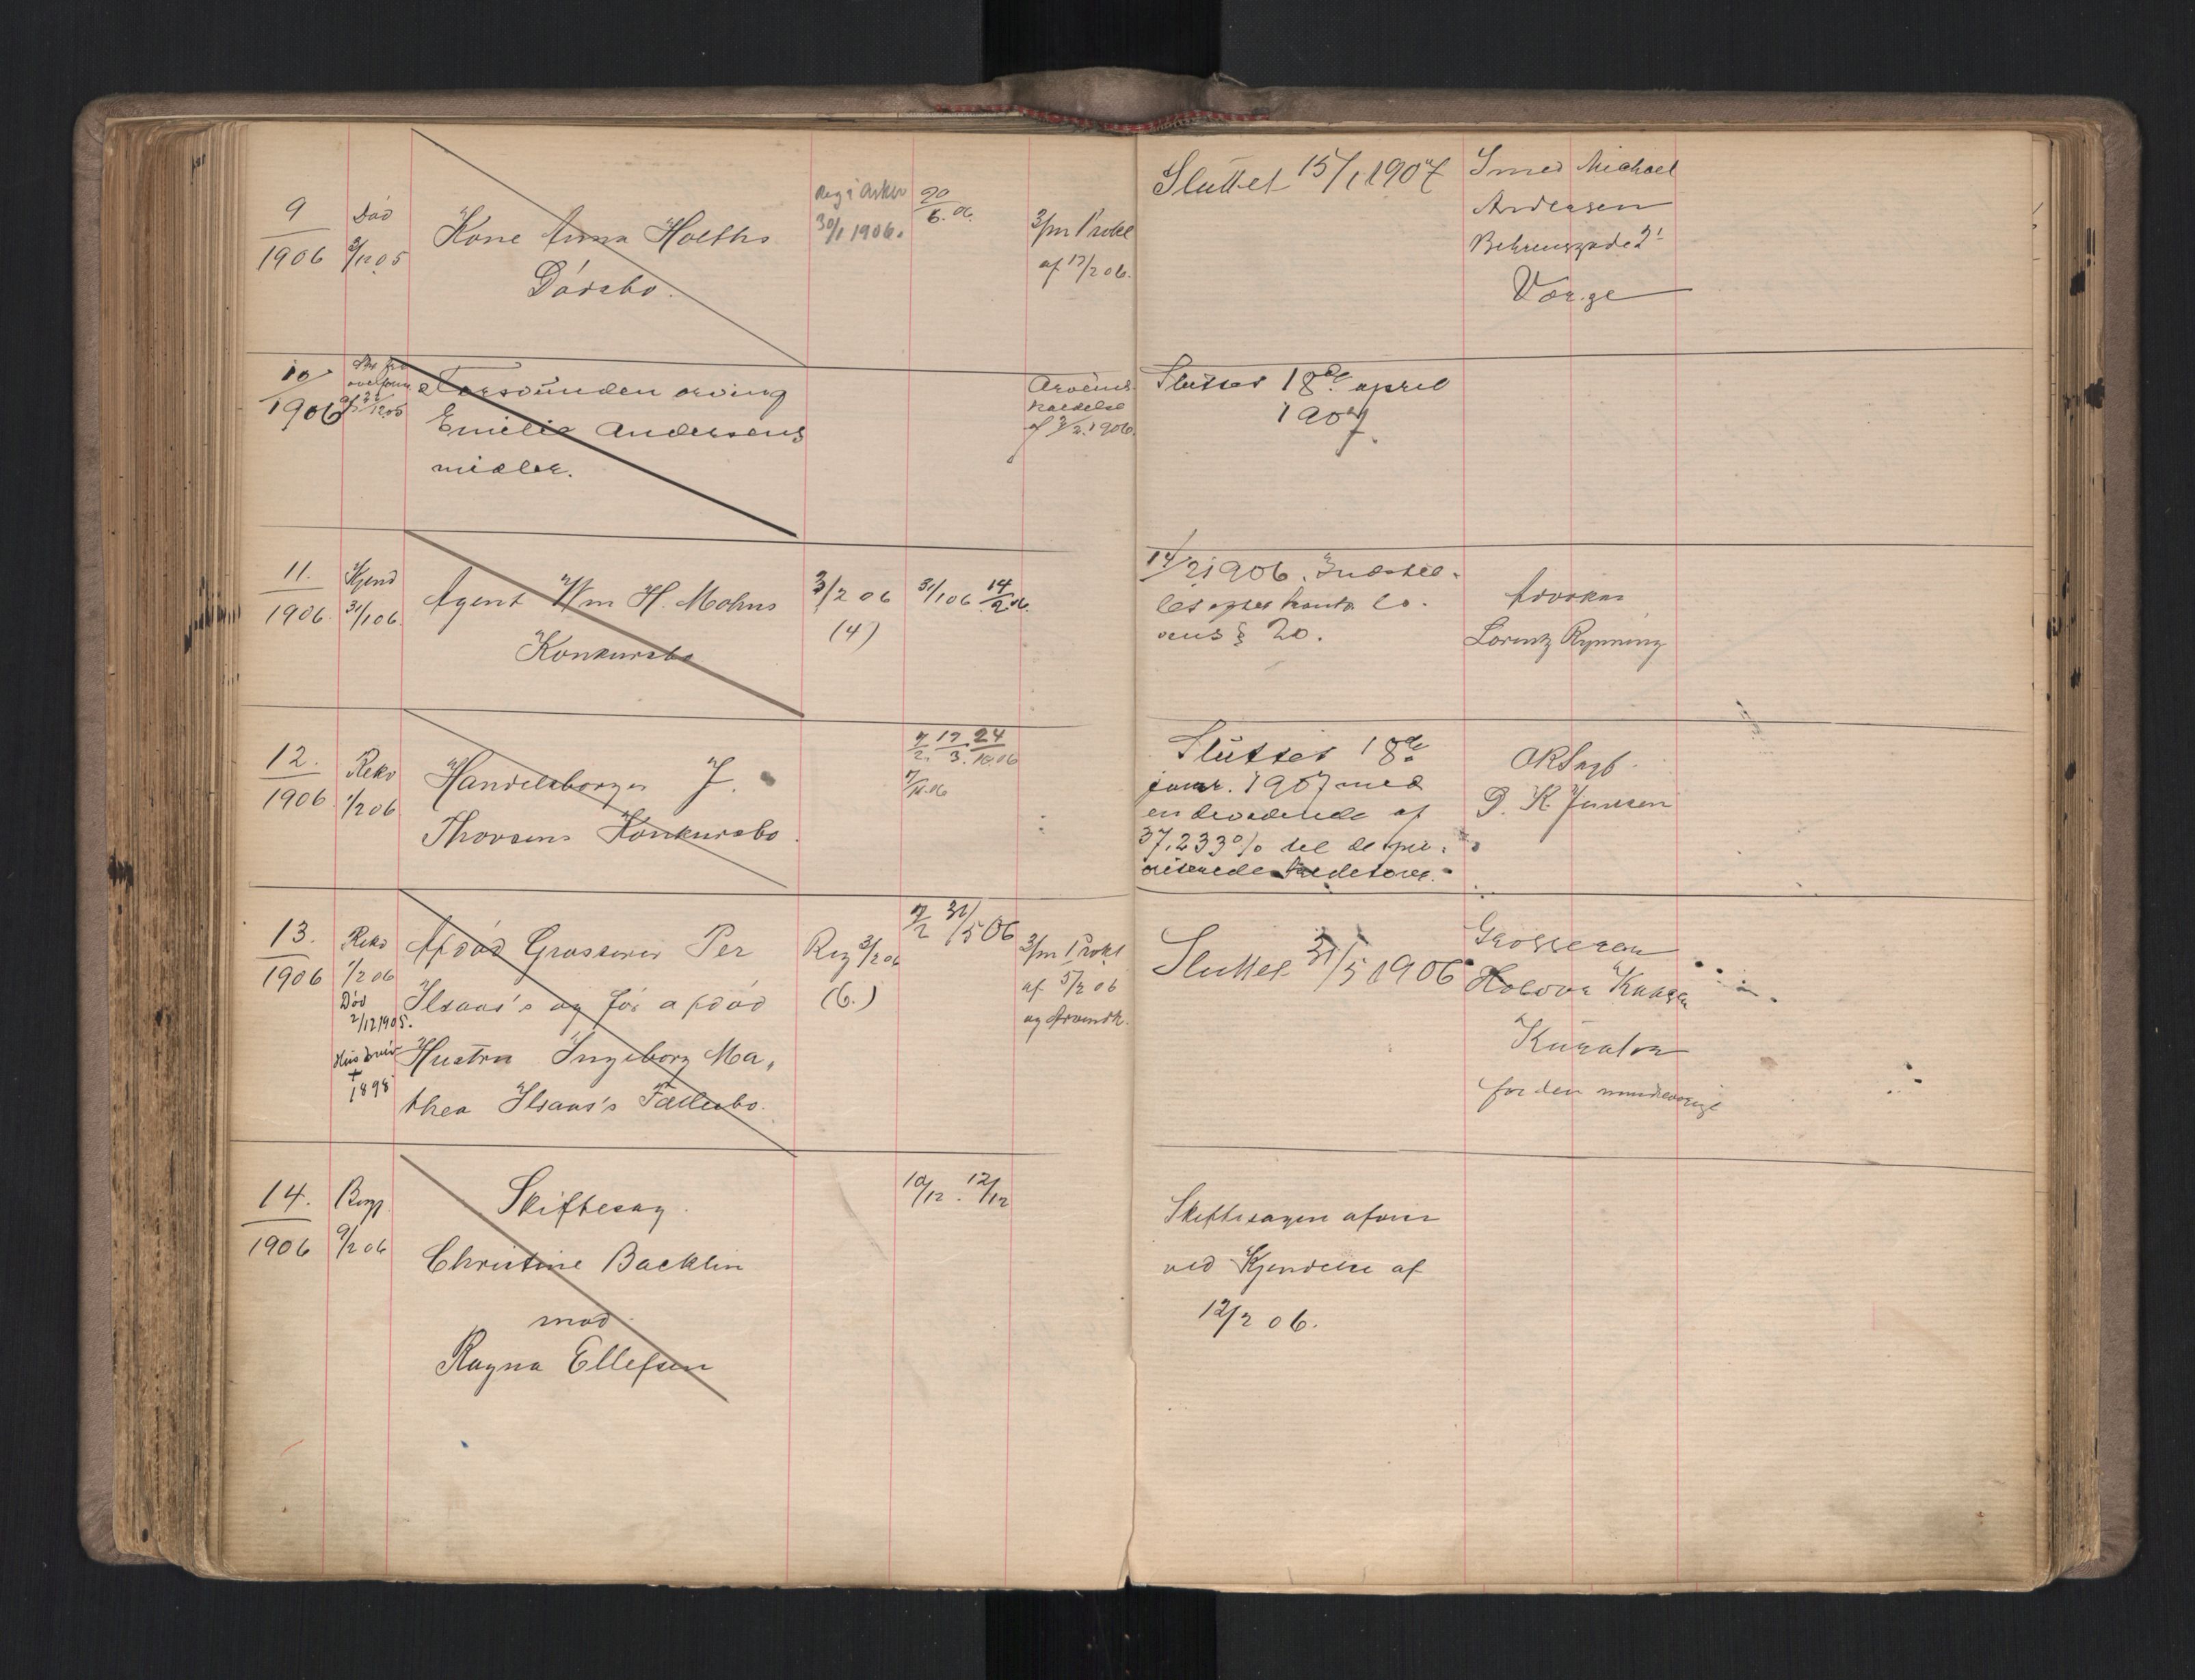 9
1906
Død
3/12 05
Kone Anna Holths
Dødsbo.
Reg i Arkiv
30/1 1906.
20/6. 06.
3/m Prokl
af 13/2 06.
Sluttet 15/1 1907
Smed Michael
Andersen
Behrensgade 2!
Værge
10
1906
Forsvunden arving
Emilie Andersens
midler.
af 3/2. 1906.
Sluttet 18de april
1907.
11.
1906
Kjend
31/1 06.
Agent Wm H. Mohns
Konkursbo
3/2 06
(4)
31/1 06 14/2 06.
14/2 1906. Indstil-
les efter konk. lo-
vens § 20.
Advokat
Lorentz Rynning
12.
1906
Rekv
1/2 06
Handelsborger J.
Thorsens Konkursbo.
7/2. 17/3. 24/10.06
Sluttet 18de
januar. 1907 med
en dividende af
37,233% til de pri-
viterede kreditorer.
ORSagf.
P. K. Jensen
13.
1906
Rekv
1/2 06
Død
2/12 1905.
Hustruen
+
1898
Afdød Grosserer Per
Ilsaas's og før afdød
Hustru Ingeborg Ma-
thea Ilsaas's Fællesbo.
Reg 3/2 06
(6.)
7/2 31/5 06
3/m Prokl
af 5/2 06
og Arveindk.
Sluttet 31/5 1906
Grosserer
Kurator
for den mindreaarige
14.
1906
9/2 06
Skiftesag.
Christine Backlin
mod
Ragna Ellefsen
10/12. 12/12
Skiftesagen afvist
ved Kjendelse af
12/2 06.